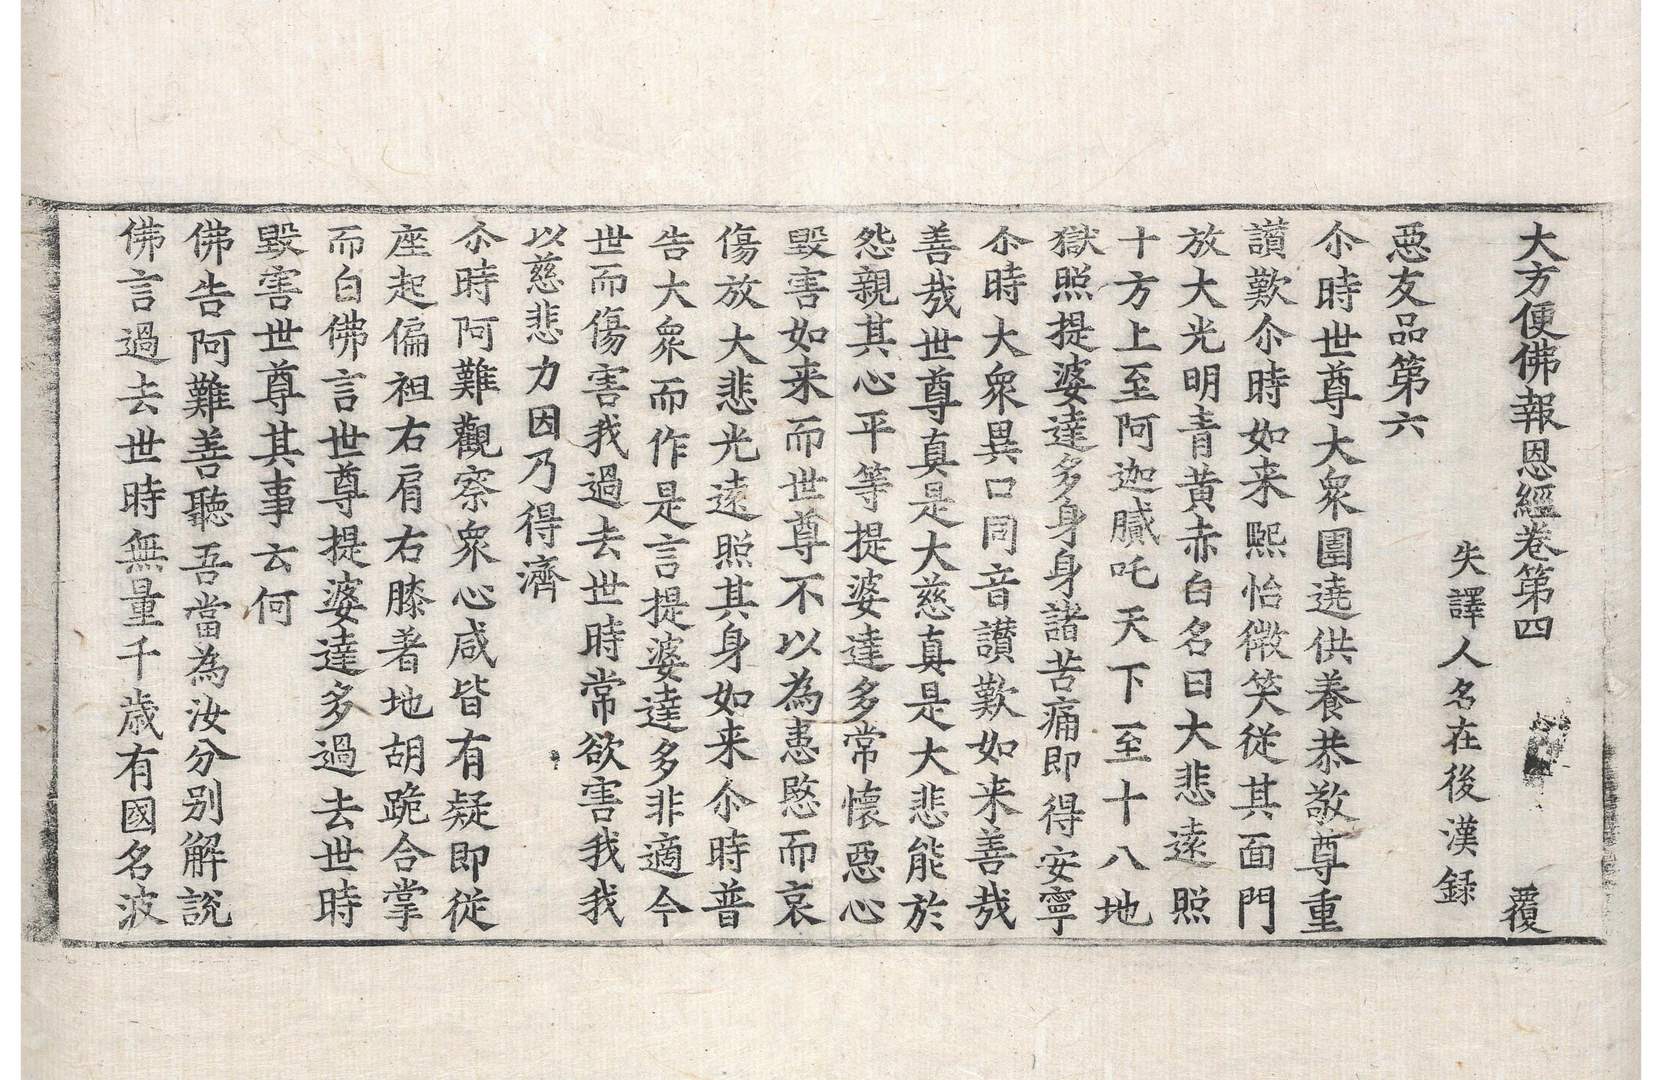 大方便佛報恩經卷第四 覆
失譯人名在後漢録
惡友品第六
尒時世尊大衆圍遶供養恭敬尊重
讃歎尒時如来熙怡微笑従其面門
放大光明青黄赤白名曰大悲遠照
十方上至阿迦膩吒天下至十八地
獄照提婆達多身身諸苦痛即得安寧
尒時大衆異口同音讃歎如来善哉
善哉世尊真是大慈真是大悲能於
怨親其心平等提婆達多常懷惡心
毀害如来而世尊不以為患愍而哀
傷放大悲光遠照其身如来尒時普
告大衆而作是言提婆達多非適今
世而傷害我過去世時常欲害我我
以慈悲力因乃得濟
尒時阿難觀察衆心咸皆有疑即従
座起偏袒右肩右膝著地胡跪合掌
而白佛言世尊提婆達多過去世時
毀害世尊其事云何
佛告阿難善聽吾當為汝分別解說
佛言過去世時無量千歳有國名波